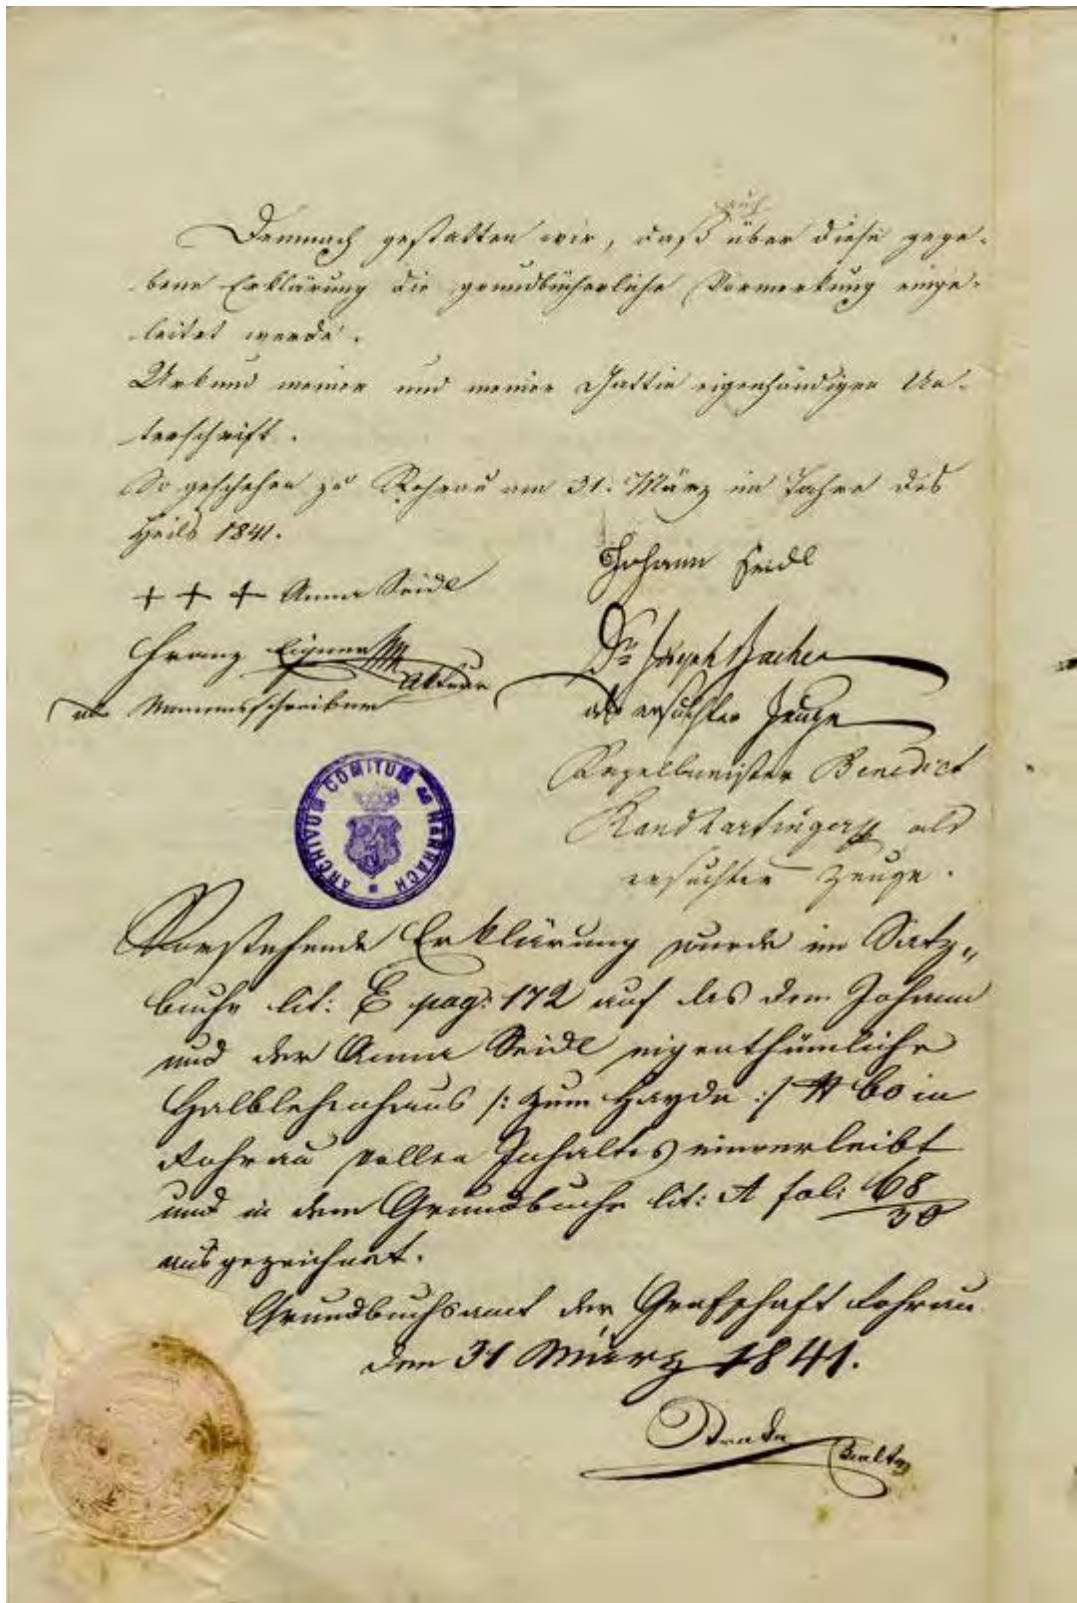 auch
Demnach gestatten wir, daß über diese gege-
bene Erklärung die grundbücherliche Vormerkung einge-
leitet werde.
Urkund meiner und meiner Gattin eigenhändigen Un-
terschrift.
So geschehen zu Rohrau am 31. März im Jahre des
Heils 1841.
Johann Seidl
+ + + Anna Seidl
Franz Aktuar
als Namensschreiber
Dr Joseph Bacher
als ersuchter Zeuge
Kapellmeister Benedict
Randhartinger als
ersuchter Zeuge.
ARCHIVUM COMITUM AB HARRACH
Vorstehende Erklärung wurde im Satz„
buche lit: E pag: 172 auf das dem Johann
und der Anna Seidl eigenthümliche
Halblehenhaus /: zum Haydn :/ N 60 in
Rohrau vollen Inhaltes einverleibt
und in dem Grundbuche lit: A fol: 68/30
ausgezeichnet.
Grundbuchsamt der Grafschaft Rohrau
den 31 März 1841.